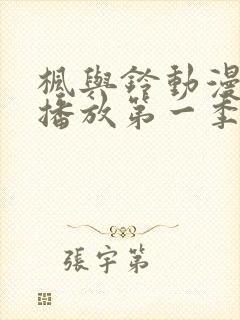 楓與鈴動漫
播放第一季
張宇第